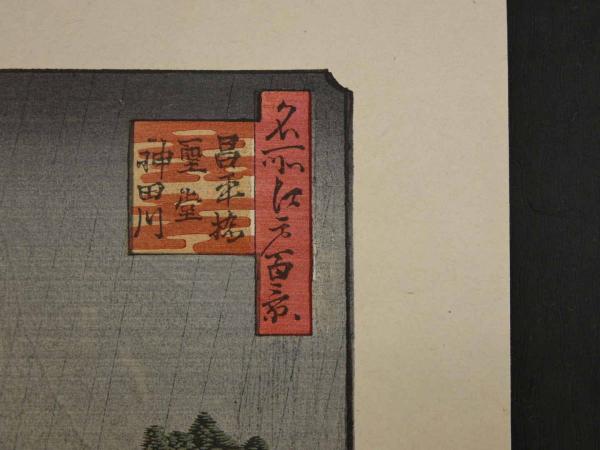 名所江戸百景
昌平橋
聖堂
神田川